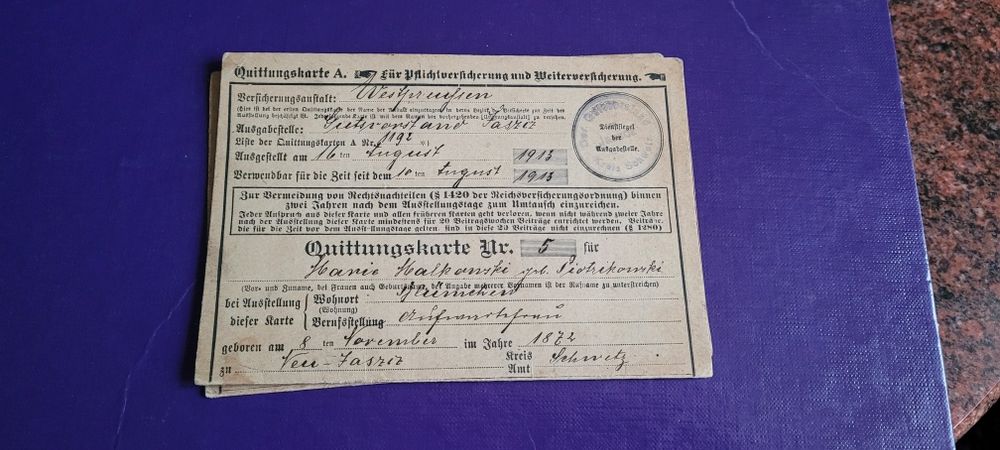 Quittungskarte A. Für Pflichtversicherung und Weiterversicherung.
Versicherungsanstalt: Westpreußen
Ausgabestelle: Gutsvorstand Jaszcz
Liste der Quittungskarten A Nr. 1192
Ausgestellt am 16 ten August 1913
Verwendbar für die Zeit seit dem 10 ten August 1913
Dienstsiegel
der
Ausgabestelle.
Kreis Schwetz
Zur Vermeidung von Rechtsnachteilen (§ 1420 der Reichsversicherungsordnung) binnen
zwei Jahren nach dem Ausstellungstage zum Umtausch einzureichen.
Jeder Anspruch aus dieser Karte und allen früheren Karten geht verloren, wenn nicht während zweier Jahre
nach der Ausstellung dieser Karte mindestens für 20 Beitragswochen Beiträge entrichtet werden.
die für die Zeit vor dem Ausstellungstage gelten, sind in diese 20 Wochen nicht einzurechnen (§ 1280)
Quittungskarte Nr. 5 für
Marie Malkowski geb. Piotrikowski
(Vor- und Zuname, bei Frauen auch Geburtsname, bei Angabe mehrerer Vornamen ist der Rufname zu unterstreichen)
bei Ausstellung dieser Karte
Wohnort
(Wohnung)
Berufsstellung Aufwartefrau
geboren am 8 ten November im Jahre 1872
zu Neu-Jaszcz Kreis Schwetz
Amt